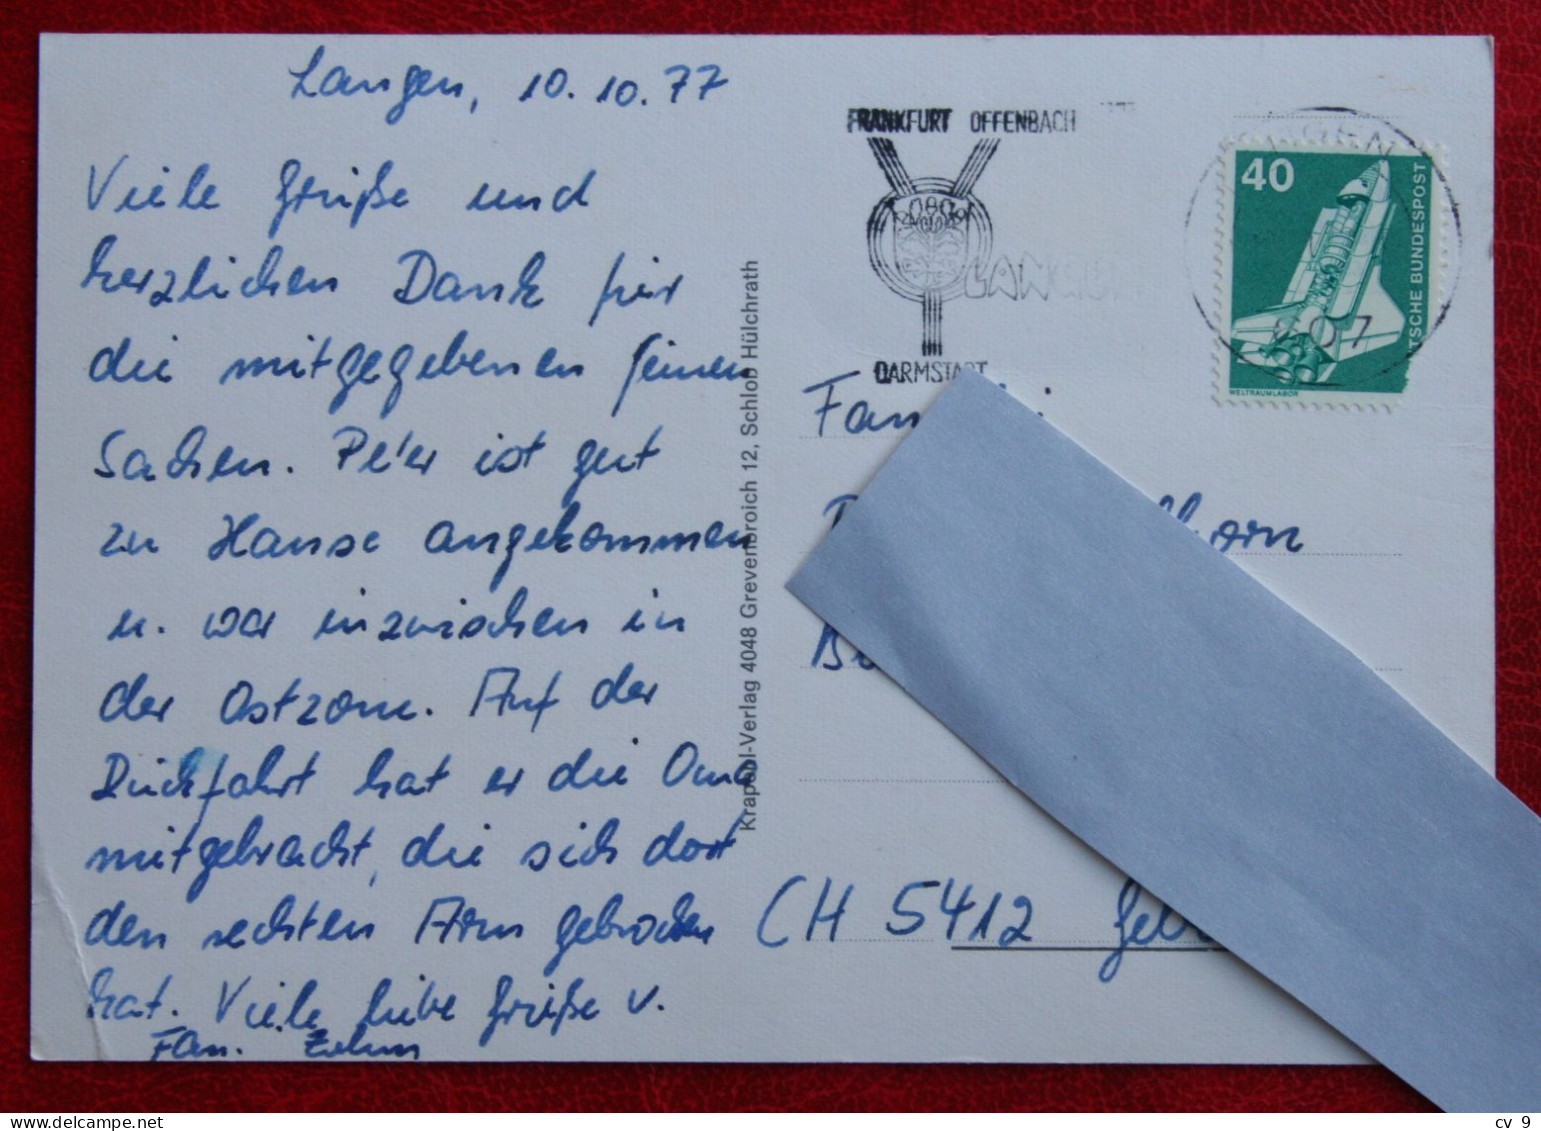 Langen, 10.10.77
Viele Grüße und
herzlichen Dank für
die mitgegebenen feinen
Sachen. Peter ist gut
zu Hause angekommen
u. war inzwischen in
der Ostzone. Auf der
Rückfahrt hat er die Oma
mitgebracht, die sich dort
den rechten Arm gebrochen
hat. Viele liebe Grüße v.
Fam.
Krapohl-Verlag 4048 Grevenbroich 12, Schloß Hülchrath
FRANKFURT OFFENBACH
LANGEN
DARMSTADT
607
40
DEUTSCHE BUNDESPOST
WELTRAUMLABOR
Fam
horn
CH 5412 Geb
cv 9